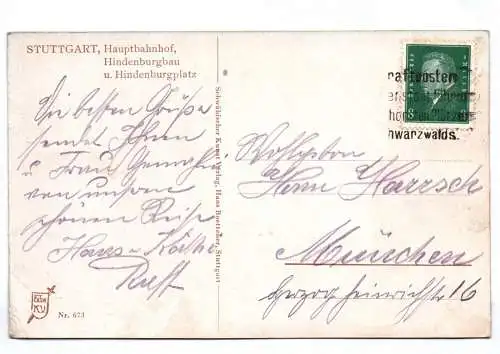 STUTTGART, Hauptbahnhof,
Hindenburgbau
u. Hindenburgplatz
Die besten Grüße
sendet Ihnen
u Frau Gemahlin
von unserer
schönen Reise
Hans u Käthe
Ruff
Nr. 673
Schwäbischer Kunst Verlag, Hans Boettcher, Stuttgart
raftposten
hwarzwalds.
8
Wohlgeb
Herrn Harrsch
München
Herzog heinrichstr 16